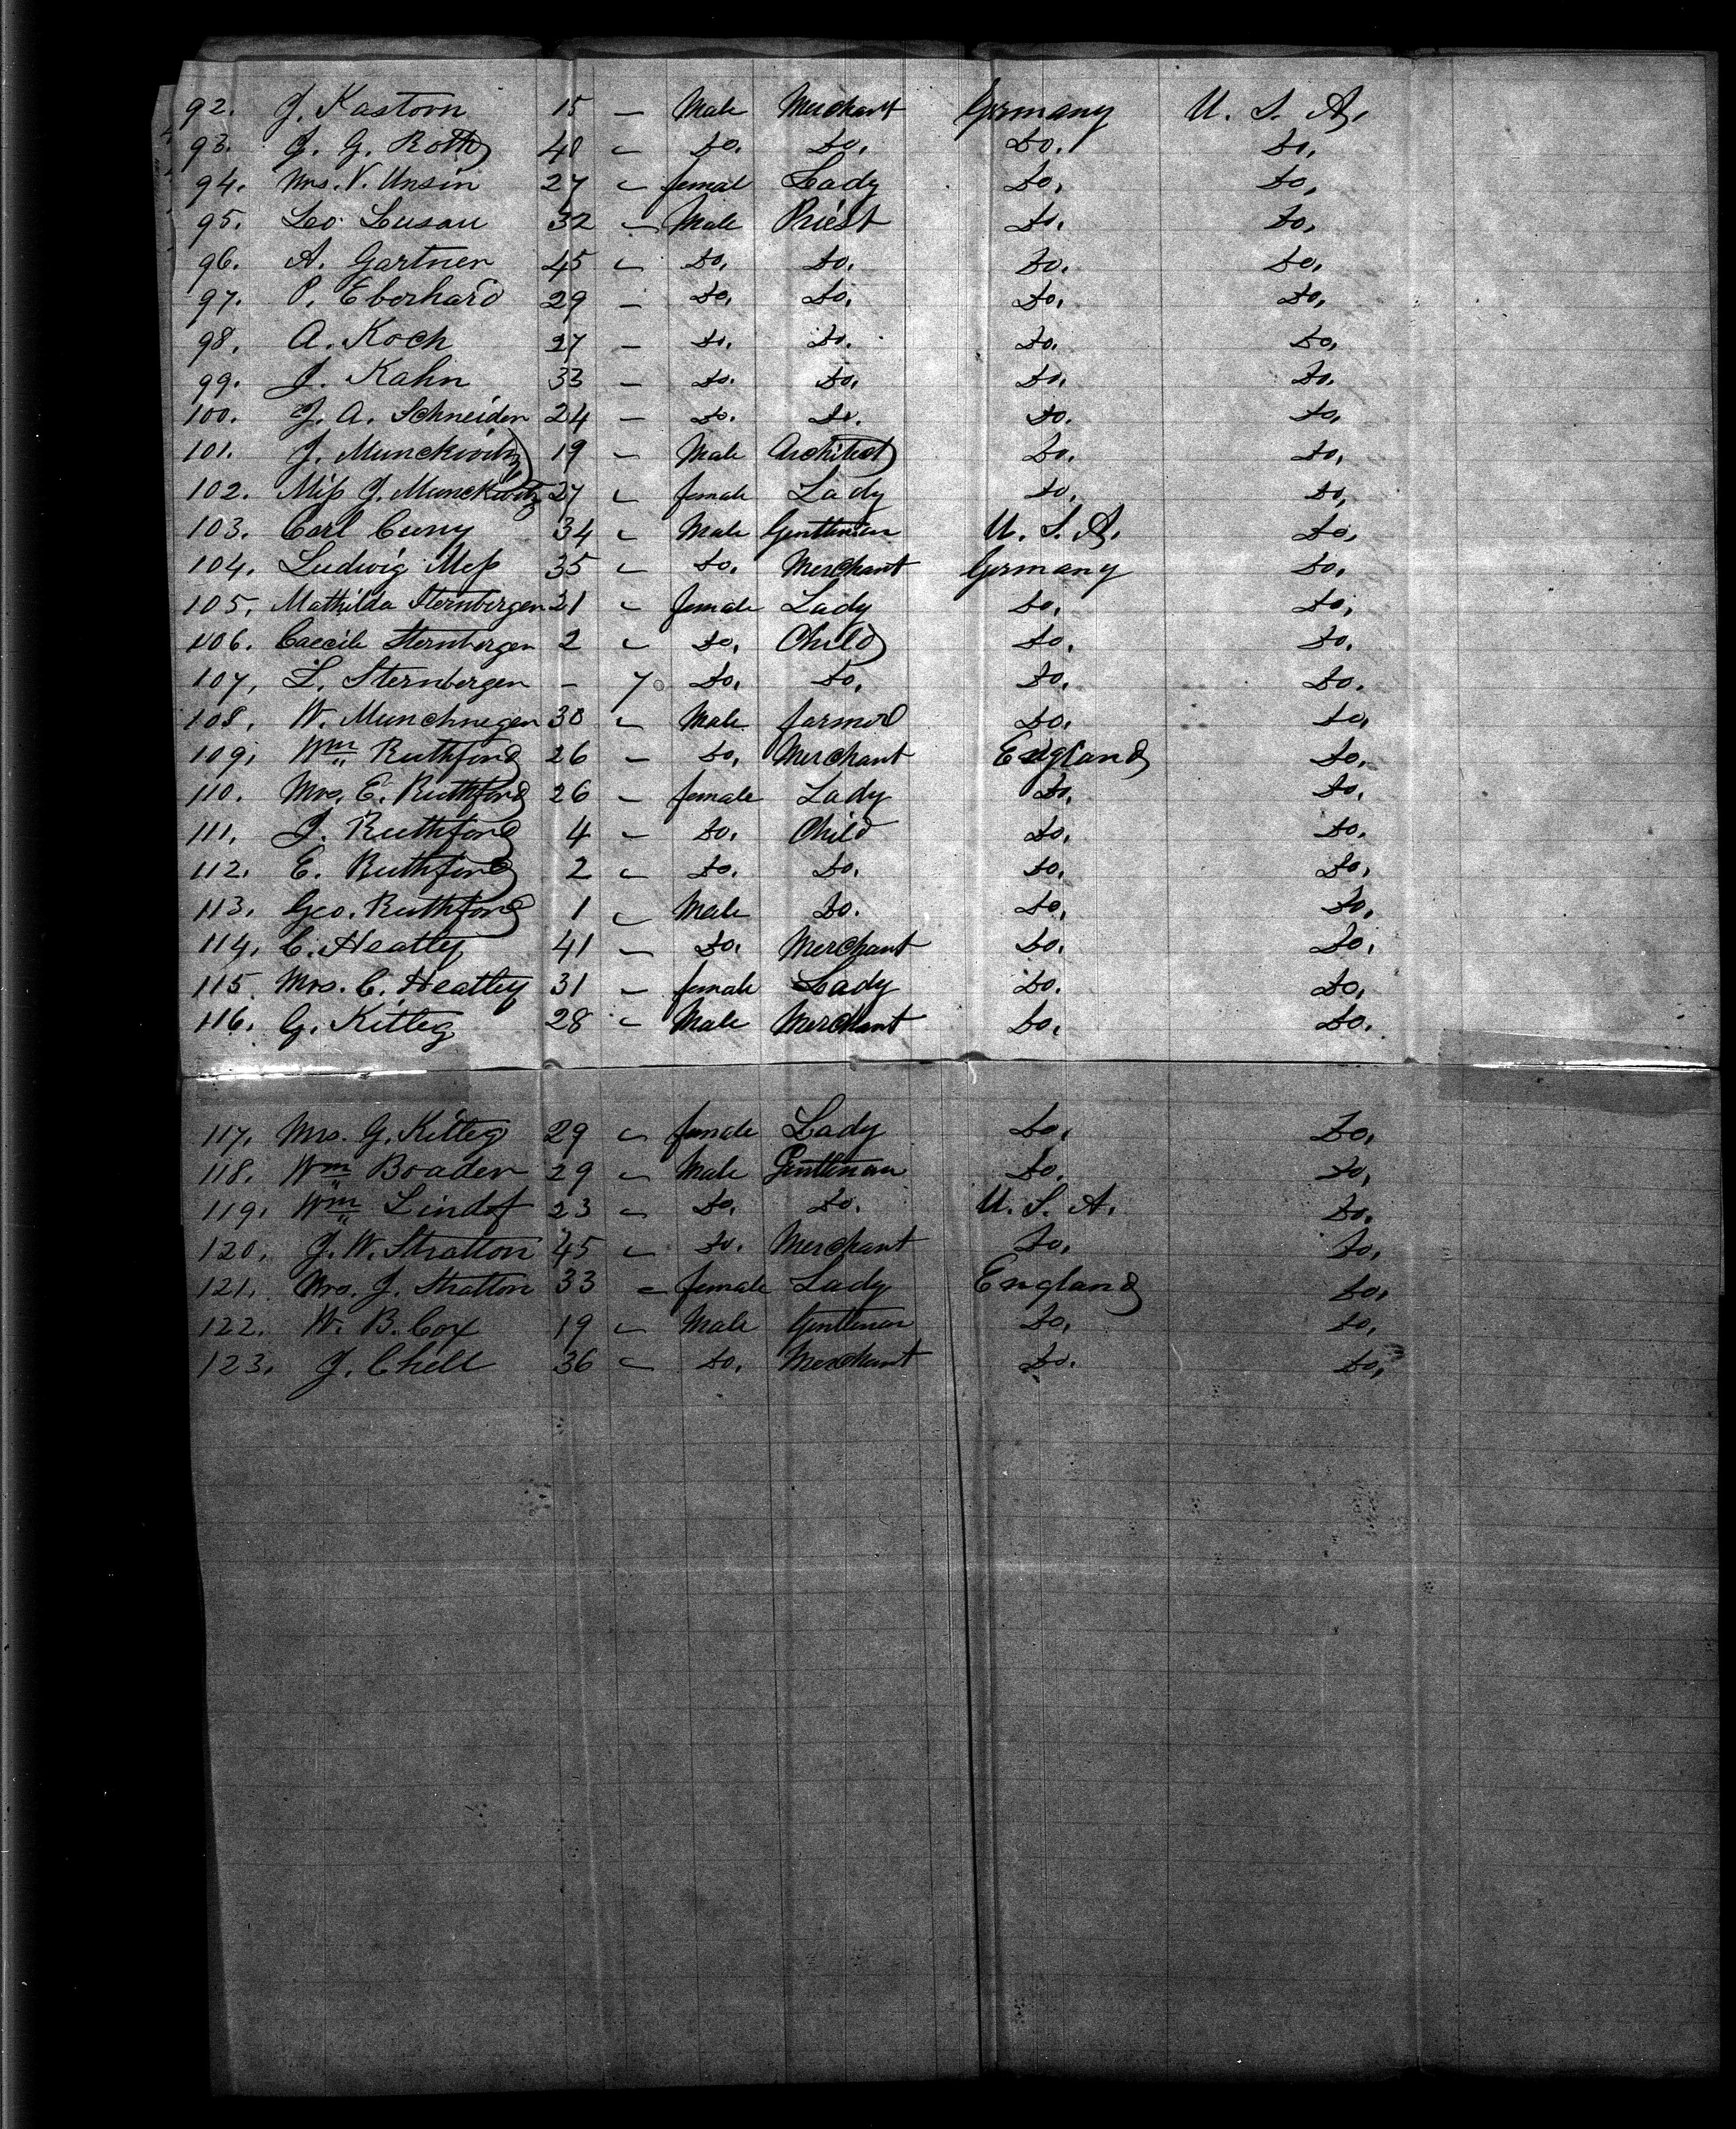 92. J. Kastorn 15 – Male Merchant Germany U. S. A.
93. J. G. Roth 40 – Do. Do. Do. Do.
94. Mrs. V. Unsin 27 – femal Lady Do. Do.
95. Leo Lusau 32 – Male Priest Do. Do.
96. A. Gartner 45 – Do. Do. Do. Do.
97. P. Eberhard 29 – Do. Do. Do. Do.
98. A. Koch 27 – Do. Do. Do. Do.
99. J. Kahn 33 – Do. Do. Do. Do.
100. J. A. Schneider 24 – Do. Do. Do. Do.
101. J. Munckwitz 19 – Male Architect Do. Do.
102. Miss J. Munckwitz 27 – female Lady Do. Do.
103. Carl Cuny 34 – Male Gentleman U. S. A. Do.
104. Ludwig Mess 35 – Do. Merchant Germany Do.
105. Mathilda Sternbergen 21 – female Lady Do. Do.
106. Caecile Sternbergen 2 – Do. Child Do. Do.
107. L. Sternbergen – 7 Do. Do. Do. Do.
108. W. Munchnegen 30 – Male farmer Do. Do.
109. Wm Ruthford 26 – Do. Merchant England Do.
110. Mrs. E. Ruthford 26 – female Lady Do. Do.
111. J. Ruthford 4 – Do. Child Do. Do.
112. E. Ruthford 2 – Do. Do. Do. Do.
113. Geo. Ruthford 1 – Male Do. Do. Do.
114. C. Heatley 41 – Do. Merchant Do. Do.
115. Mrs. C. Heatley 31 – female Lady Do. Do.
116. G. Kitleg 28 – Male Merchant Do. Do.
117. Mrs. G. Kitleg 29 – female Lady Do. Do.
118. Wm Boaden 29 – Male Gentleman Do. Do.
119. Wm 23 – Do. Do. U. S. A. Do.
120. J. W. Stratton 45 – Do. Merchant Do. Do.
121. Mrs. J. Stratton 33 – female Lady England Do.
122. W. B. Cox 19 – Male Gentleman Do. Do.
123. J. Chell 36 – Do. Merchant Do. Do.